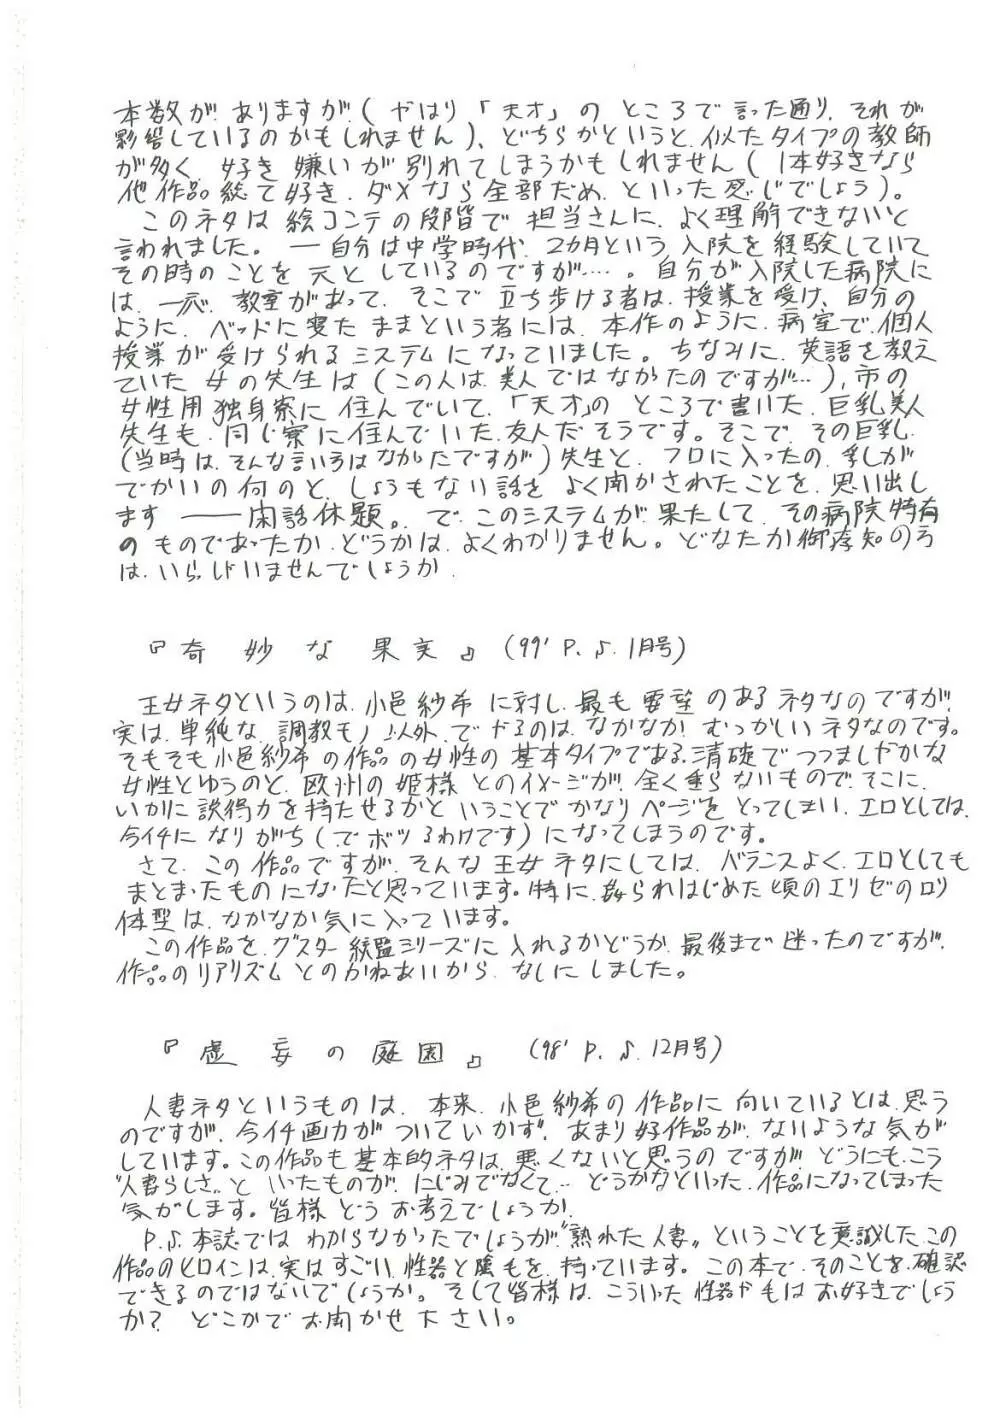 本数がありますが(やはり「天才」のところで言った通り、それが
影響しているのかもしれません)、どちらかというと、似たタイプの教師
が多く、好き嫌いが別れてしまうかもしれません(1本好きなら
他作品総て好き、ダメなら全部だめ、といった感じでしょう)。
このネタは絵コンテの段階で担当さんに、よく理解できないと
言われました。―自分は中学時代、2カ月という入院を経験していて
その時のことを元としているのですが…。自分が入院した病院に
は、一応、教室があって、そこで立ち歩ける者は、授業を受け、自分の
ように、ベッドに寝たままという者には、本作のように、病室で、個人
授業が受けられるシステムになっていました。ちなみに、英語を教え
ていた女の先生は(この人は、美人ではなかったのですが…)、市の
女性用独身寮に住んでいて、「天才」のところで書いた、巨乳美人
先生も、同じ寮に住んでいた、友人だそうです。そこで、その巨乳、
(当時は、そんな言いろはなかたですが)先生と、フロに入ったの、乳しが
でかいの何のと、しょうもない話をよく聞かされたことを、思い出し
ます――閑話休題。で、このシステムが果たして、その病院特有
のものであったか、どうかは、よくわかりません。どなたか御存知の方
は、いらっしゃいませんでしょうか。
『奇妙な果実』(99' P.S.1月号)
王女ネタというのは、小邑紗希に対し、最も要望のあるネタなのですが、
実は、単純な、調教モノ以外でやるのは、なかなかむつかしいネタなのです。
そもそも小邑紗希の作品の女性の基本タイプである、清礎でつつましやかな
女性とゆうのと、欧州の姫様とのイメージが、全く重らないもので、そこに、
いかに説得力を持たせるかということでかなりページをとってしまい、エロとしては、
今イチになりがち(でボツるわけです)になってしまうのです。
さて、この作品ですが、そんな王女ネタにしては、バランスよく、エロとしても
まとまったものになったと思っています。
この作品を、グスター総監シリーズに入れるかどうか、最後まで迷ったのですが、
作品のリアリズムとのかねあいから、なしにしました。
『虚妄の庭園』(98' P.S.12月号)
人妻ネタというものは、本来、小邑紗希の作品に向いているとは、思う
のですが、今イチ画力がついていかず、あまり好作品が、ないような気が
しています。この作品も基本的ネタは、悪くないと思うのですが、どうにも、こう
“人妻らしさ”といったものが、にじみでなくて…どうかなといった、作品になってしまった
気がします。皆様どうお考えでしょうか。
P.S.本誌ではわからなかったでしょうが“熟れた人妻”ということを意識した、この
作品のヒロインは、実はすごい、性器と陰毛を、持っています。この本で、そのことを、確認
できるのではないでしょうか。そして皆様は、こういった性器かもはお好きでしょう
か?どこかでお聞かせ下さい。